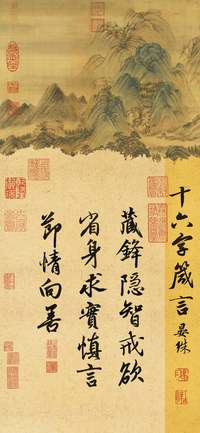 十六字箴言 晏殊
藏鋒隐智戒欲
省身求實慎言
節情向善